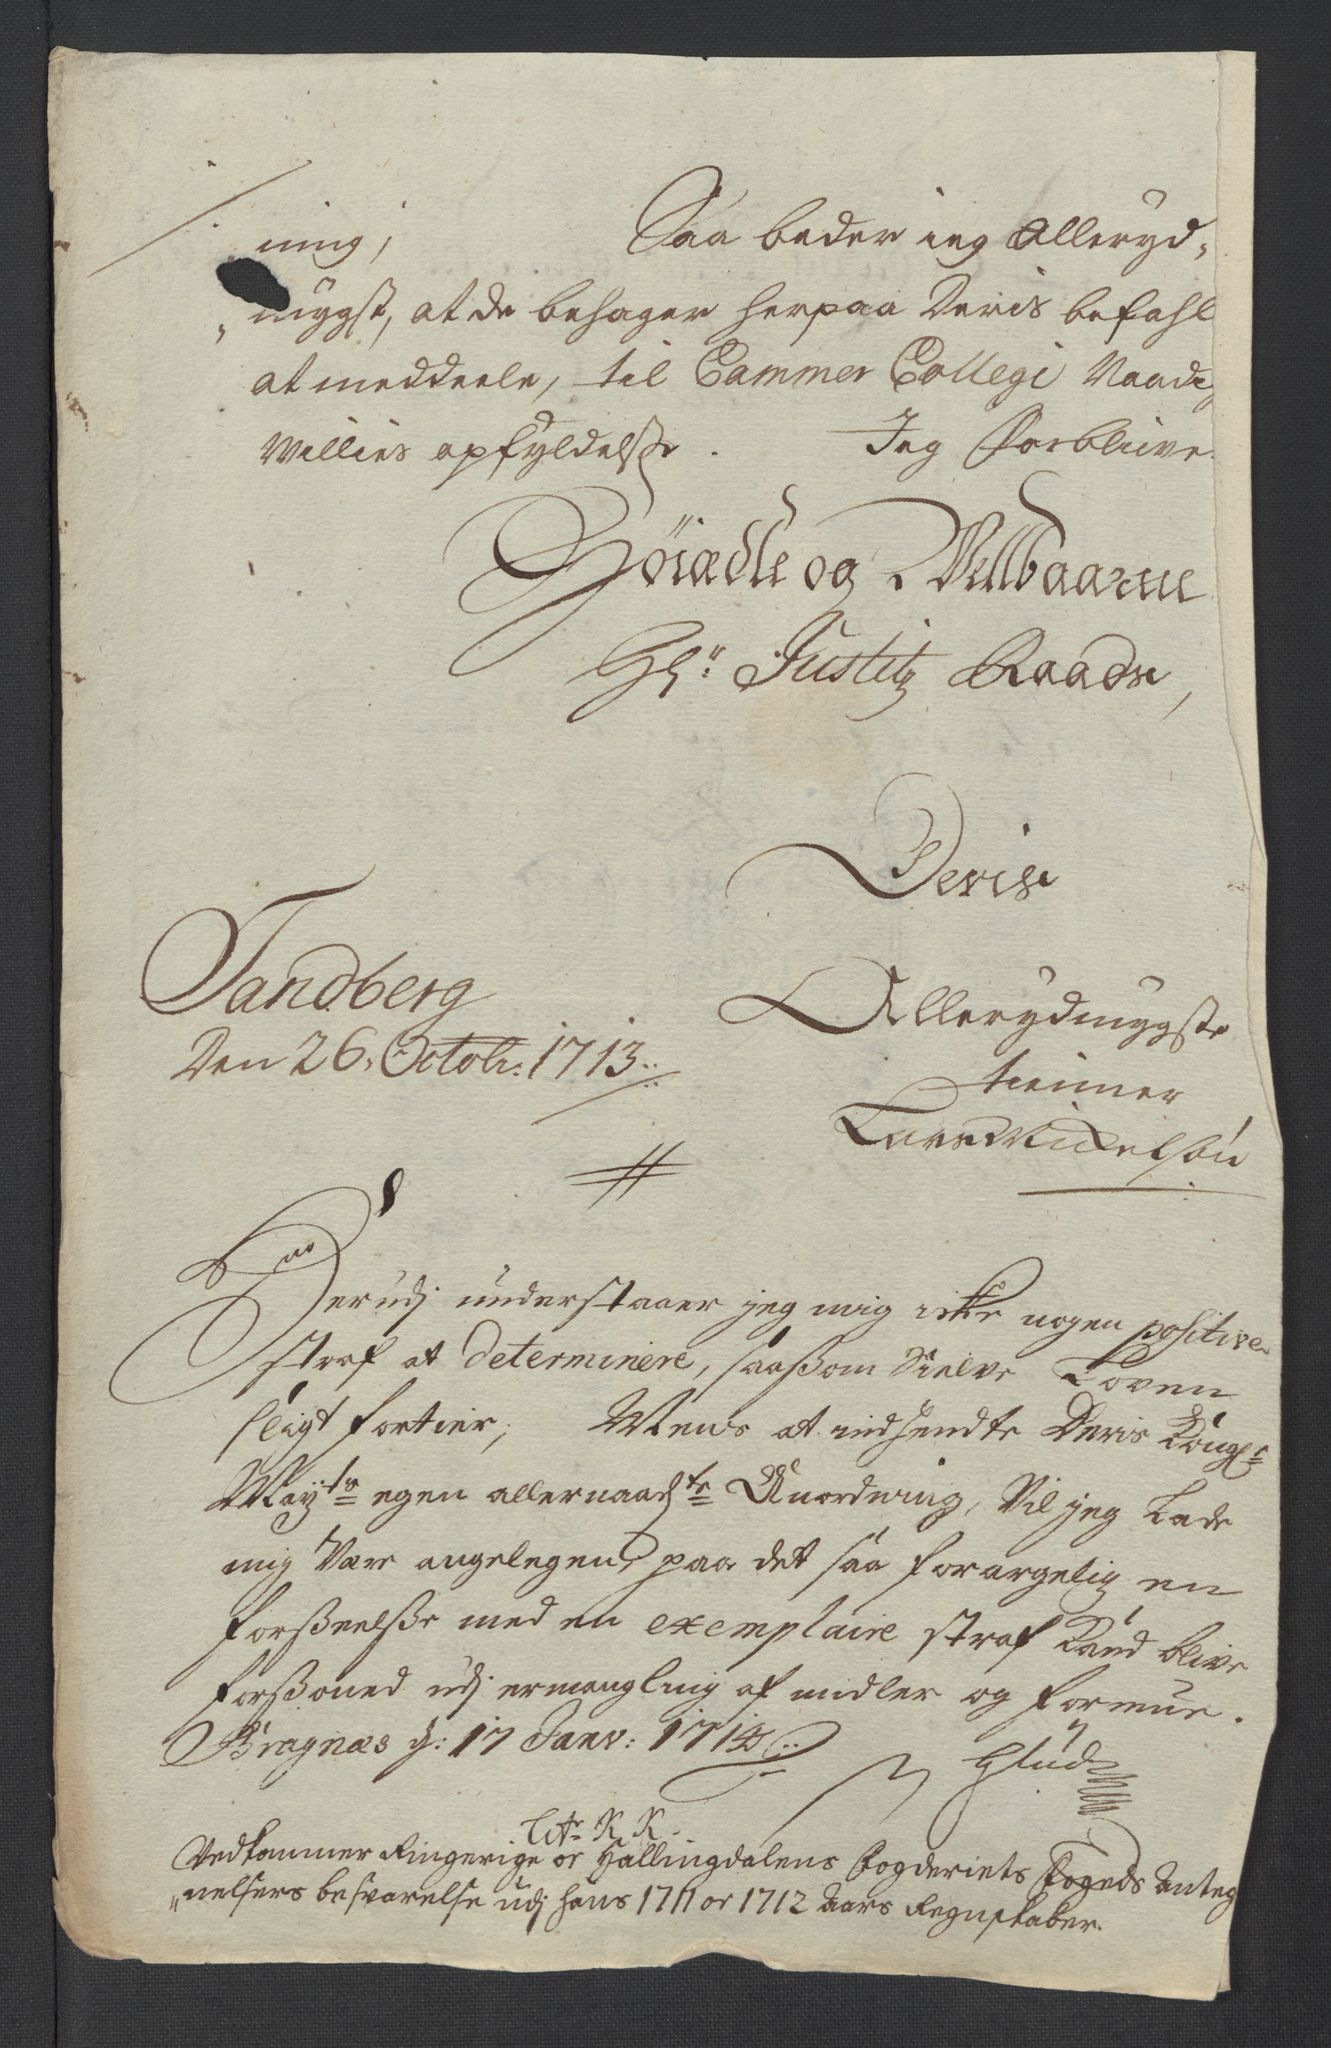 ning; Saa beder ieg Alleryd-
mygst, at de behager herpaa Deris befahl
at meddeele, til Cammer Collegi Naads
Willies opfyldelse. Jeg Forblive
Høiædle og Velbaarne
Hr: Justitz Raads,
Deris
Sandberg
Den 26. Octobr: 1713
Allerydmygste
tienner
Lars Mickelsøn
Herudj understaaer jeg mig icke nogen positive
straf at determinere, saasom Sielve Loven
sligt fortier; Mens at indhendte Deris Kongl:
Mayts egen allernaadste Anordning, Vil jeg Lade
mig Være angelegen, paa det saa forargelig en
forseelse med en exemplaire straf Kand blive
forsoned udj ermangling af midler og formue.
Bragnæs d: 17 Janv: 1714
Glud
Litr K K.
Vedkommer Ringerige og Hallingdalens fogderiets fogeds Anteg
nelsers besvarelse udj hans 1711 og 1712 Aars Regnskaber.